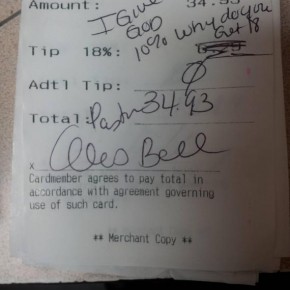 Amount: 34.93
I Give
God
10% why do you
Get 18
Tip 18%:
Adtl Tip: 0
Total: Pastor 34.93
x Alois Bell
Cardmember agrees to pay total in
accordance with agreement governing
use of such card.
** Merchant Copy **